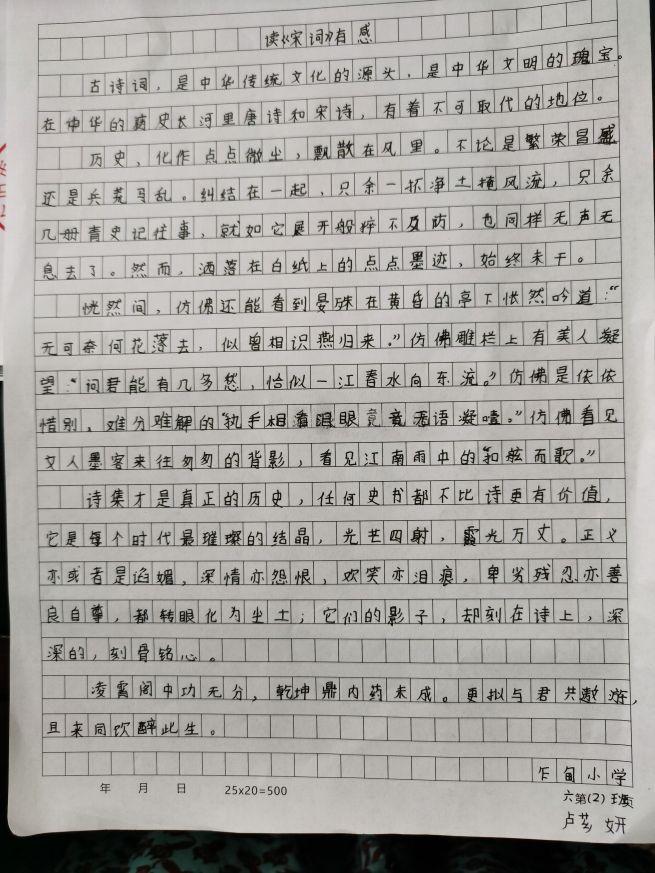 读《宋词》有感
古诗词，是中华传统文化的源头，是中华文明的瑰宝。
在中华的历史长河里唐诗和宋诗，有着不可取代的地位。
历史、化作点点微尘，飘散在风里。不论是繁荣昌盛
还是兵荒马乱。纠结在一起，只余一抔净土掩风流，只余
几册青史记往事，就如它展开般猝不及防，也同样无声无
息去了。然而，洒落在白纸上的点点墨迹，始终未干。
恍然间，仿佛还能看到晏殊在黄昏的亭下怅然吟道：“
无可奈何花落去，似曾相识燕归来。”仿佛雕栏上有美人凝
望：“问君能有几多愁，恰似一江春水向东流。”仿佛是依依
惜别，难分难解的“执手相看泪眼竟无语凝噎。”仿佛看见
文人墨客来往匆匆的背影，看见江南雨中的“和舷而歌。”
诗集才是真正的历史，任何史书都不比诗更有价值，
它是每个时代最璀璨的结晶，光芒四射，霞光万丈。正义
亦或者是谄媚，深情亦怨恨，欢笑亦泪痕，卑劣残忍亦善
良自尊，都转眼化为尘土；它们的影子，却刻在诗上，深
深的，刻骨铭心。
凌霄阁中功无分，乾坤鼎内药未成。更拟与君共遨游，
且来同饮醉此生。
乍甸小学
年 月 日 25x20=500
六第(2)班
卢 妍